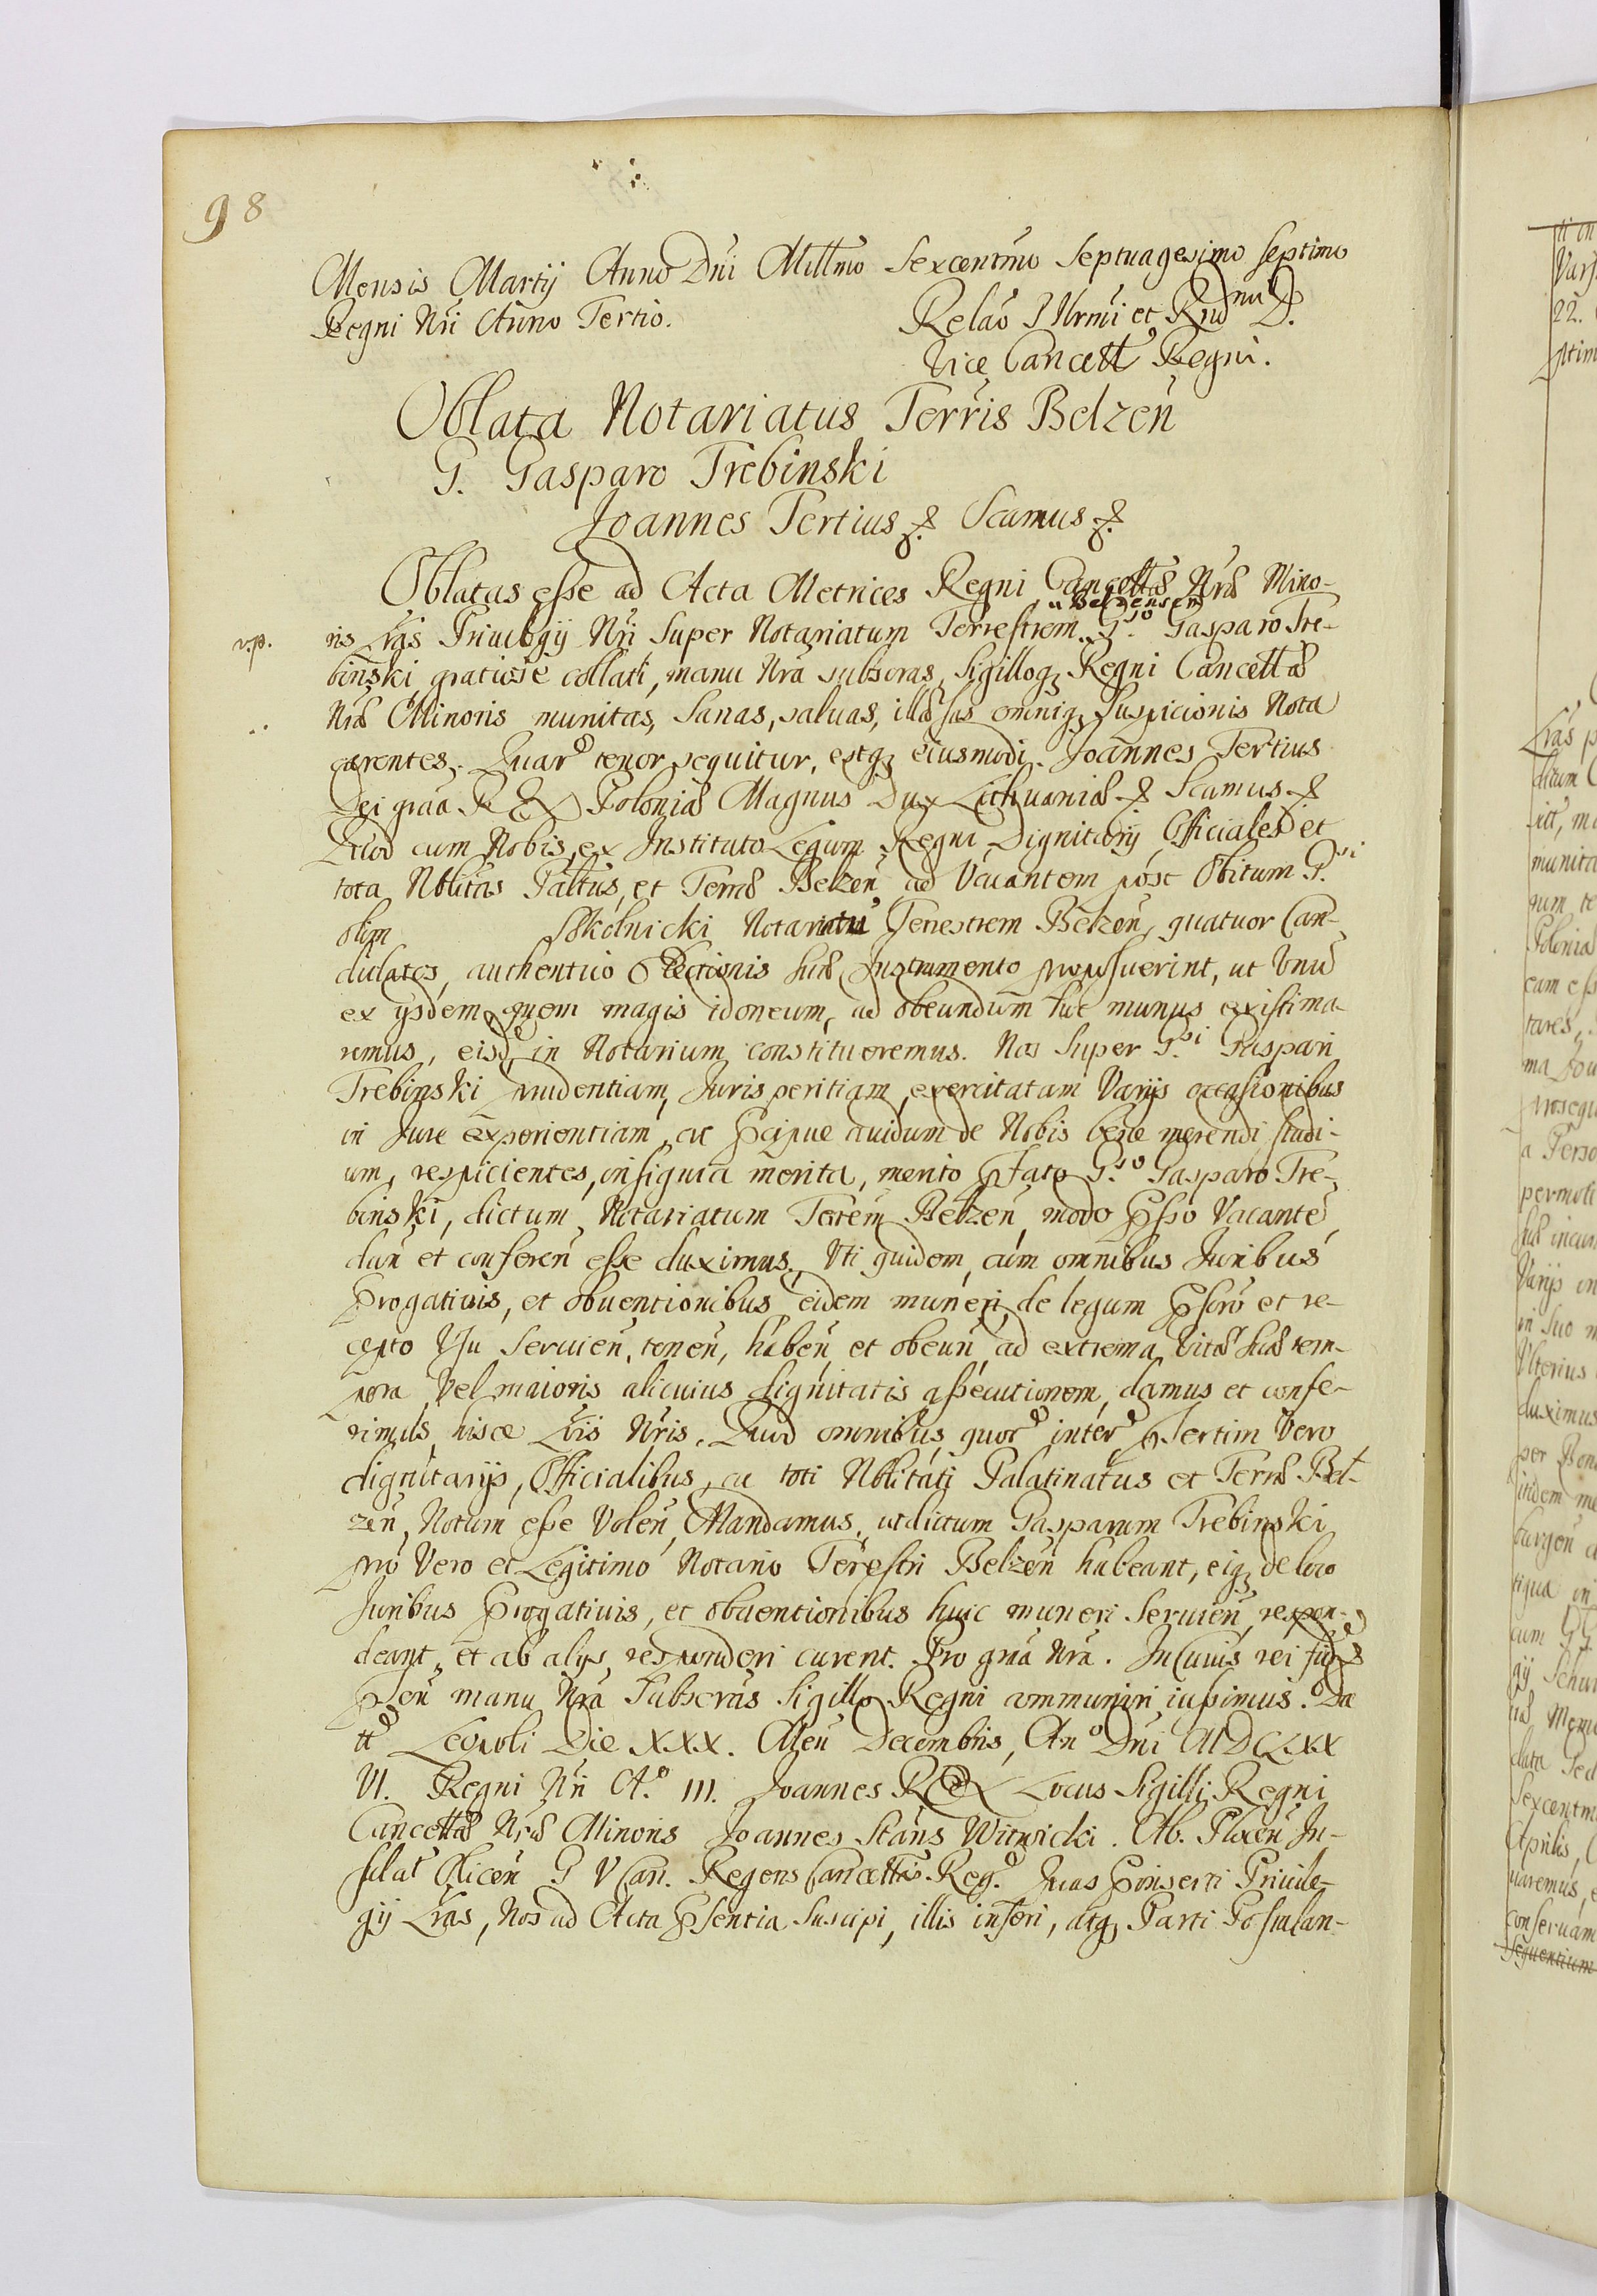 98
Mensis Martij Anno Dni Millmo Sexcentmo Septuagesimo septimo
Regni Nri Anno Tertio. Relao Illrmi et Rnd nu D.
Vice Cancell Regni.
Oblata Notariatus Terris Belzen
G. Gasparo Trebinski
Joannes Tertius &. Scamus &.
Oblatas esse ad Acta Metrices Regni Cancellæ Nræ Mino-
v.p. ris Lras Priuilegij Nri Super Notariatum Terrestrem Belzensem G.so Gasparo Tre-
binski gratiose collati, manu Nra subscras, Sigilloq Regni Cancellæ
Nræ Minoris munitas, Sanas, saluas, illæsas omniq Suspicionis Nota
carentes. Quar tenor sequitur, estq eiusmodi. Joannes Tertius
Dei graa REX Poloniæ Magnus Dux Lithuaniæ & Scamus &
Quod cum Nobis, ex Instituto Legum Regni Dignitarij Officiales et
tota Nblitas Paltus, et Terræ Belzen ad Vacantem post Obitum G.si
olim Skolnicki Notariatu Terrestrem Belzen, quatuor Can-
didatos, authentico Electionis suæ Instrumento proposuerint, ut Vnu
ex ijsdem quem magis idoneum, ad obeundum hoc munus existima-
remus, eisd in Notarium constitueremus. Nos Super G.si Gaspari
Trebinski prudentiam, Juris peritiam, exercitatam Varijs occasionibus
in Jure experientiam, ac pcipue auidum de Nobis bene merendi studi-
um, respicientes, insignia merita, merito pfato G.so Gasparo Tre-
binski, dictum Notariatum Terem Belzen modo pssо Vacante
dan et conferen esse duximus. Vti quidem, cum omnibus Juribus
progatiuis, et obuentionibus eidem muneri de legum pscro et re-
cepto Vsu Seruien, tenen, haben et obeun ad extrema Vitæ suæ tem-
pora Vel maioris alicuius dignitatis assecutionem, damus et confe-
rimus hisce Lris Nris. Quod omnibus quor inter psertim Vero
dignitarijs, Officialibus, ac toti Nblitati Palatinatus et Terræ Bel-
zen, Notum esse Volen Mandamus, ut dictum Gasparum Trebinski
pro Vero et Legitimo Notario Terestri Belzen habeant, eiq de loco
Juribus progatiuis, et obuentionibus huic muneri Seruien respon-
deant, et ab alijs responderi curent. Pro graa Nra. In Cuius rei fid
psen manu Nra Subscras Sigillo Regni communiri iussimus. Da
tt Leopoli Die XXX. Men Decembris, An° Dni MDCLXX
VI. Regni Nri A.° III. Joannes REX Locus Sigilli Regni
Cancellæ Nræ Minoris Joannes Stans Witwicki. Ab. Plocen In-
sulat Olicen P V Can. Regens Cancellæ Reg. Quas pinserti Priuile-
gij Lras, Nos ad Acta psentia Suscipi, illis inseri, atq Parti Postulan-